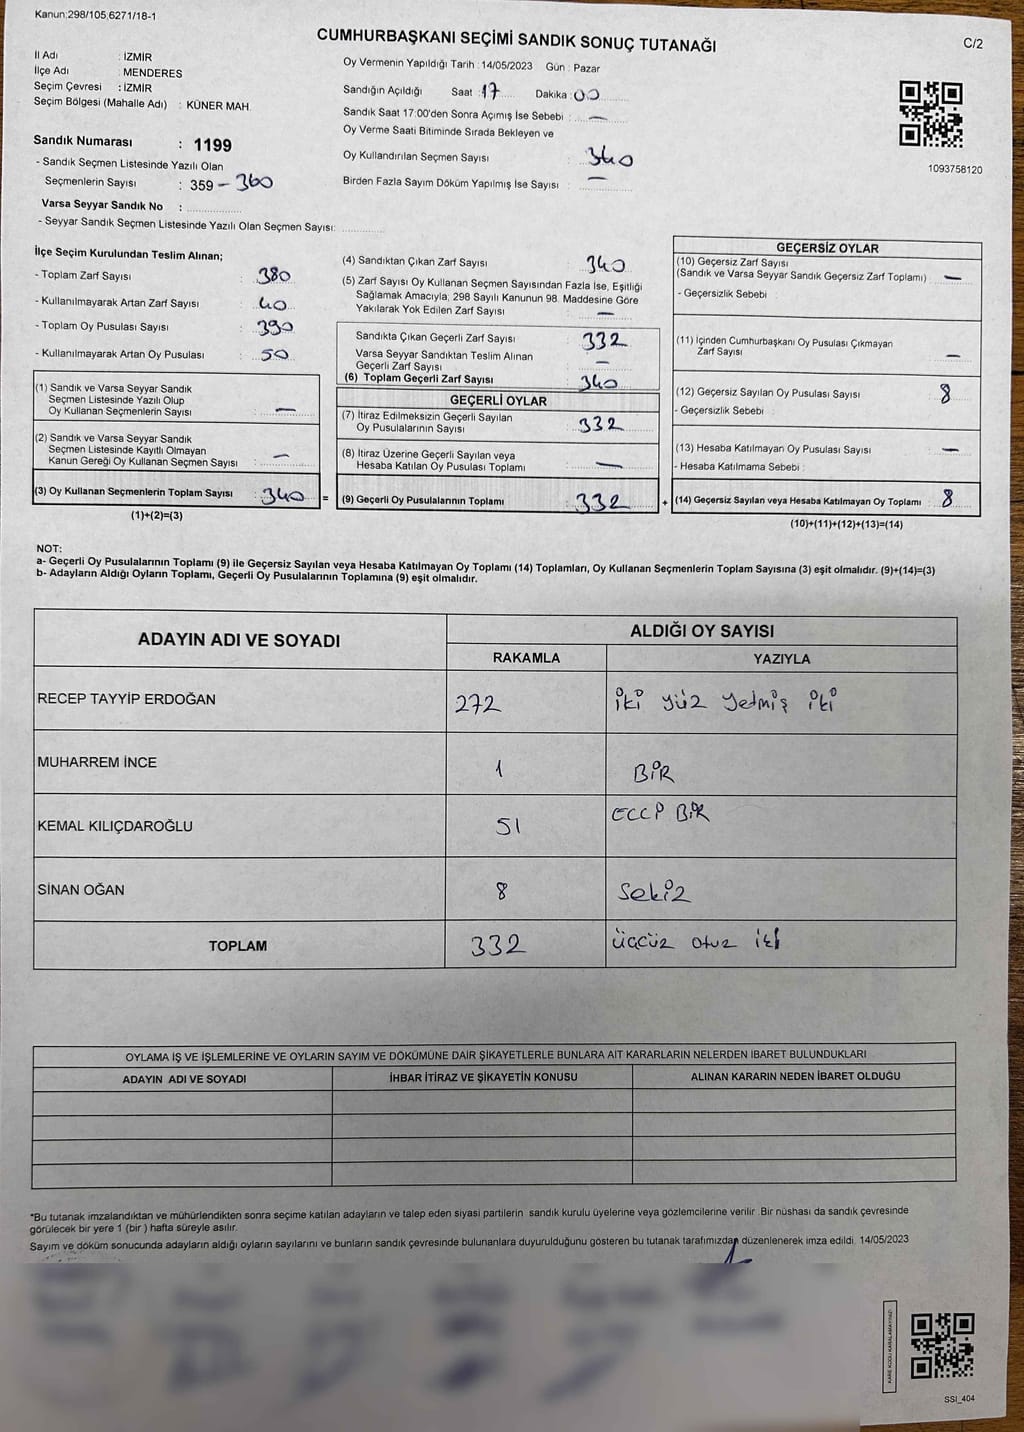 Kanun:298/105,6271/18-1
CUMHURBAŞKANI SEÇİMİ SANDIK SONUÇ TUTANAĞI
C/2
İl Adı : İZMİR
İlçe Adı : MENDERES
Seçim Çevresi : İZMİR
Seçim Bölgesi (Mahalle Adı) : KÜNER MAH.
Oy Vermenin Yapıldığı Tarih : 14/05/2023 Gün : Pazar
Sandığın Açıldığı Saat : 17 Dakika : 00
Sandık Saat 17:00'den Sonra Açımış İse Sebebi : —
Oy Verme Saati Bitiminde Sırada Bekleyen ve
Oy Kullandırılan Seçmen Sayısı : 340
Birden Fazla Sayım Döküm Yapılmış İse Sayısı : —
1093758120
Sandık Numarası : 1199
- Sandık Seçmen Listesinde Yazılı Olan
Seçmenlerin Sayısı : 359 – 360
Varsa Seyyar Sandık No :
- Seyyar Sandık Seçmen Listesinde Yazılı Olan Seçmen Sayısı:
İlçe Seçim Kurulundan Teslim Alınan;
- Toplam Zarf Sayısı : 380
- Kullanılmayarak Artan Zarf Sayısı : 40
- Toplam Oy Pusulası Sayısı : 390
- Kullanılmayarak Artan Oy Pusulası : 50
(1) Sandık ve Varsa Seyyar Sandık
Seçmen Listesinde Yazılı Olup
Oy Kullanan Seçmenlerin Sayısı : —
(2) Sandık ve Varsa Seyyar Sandık
Seçmen Listesinde Kayıtlı Olmayan
Kanun Gereği Oy Kullanan Seçmen Sayısı : —
(3) Oy Kullanan Seçmenlerin Toplam Sayısı : 340 =
(1)+(2)=(3)
(4) Sandıktan Çıkan Zarf Sayısı : 340
(5) Zarf Sayısı Oy Kullanan Seçmen Sayısından Fazla İse, Eşitliği
Sağlamak Amacıyla; 298 Sayılı Kanunun 98. Maddesine Göre
Yakılarak Yok Edilen Zarf Sayısı : —
Sandıkta Çıkan Geçerli Zarf Sayısı : 332
Varsa Seyyar Sandıktan Teslim Alınan
Geçerli Zarf Sayısı : —
(6) Toplam Geçerli Zarf Sayısı : 340
GEÇERLİ OYLAR
(7) İtiraz Edilmeksizin Geçerli Sayılan
Oy Pusulalarının Sayısı : 332
(8) İtiraz Üzerine Geçerli Sayılan veya
Hesaba Katılan Oy Pusulası Toplamı : —
(9) Geçerli Oy Pusulalarının Toplamı : 332 +
GEÇERSİZ OYLAR
(10) Geçersiz Zarf Sayısı
(Sandık ve Varsa Seyyar Sandık Geçersiz Zarf Toplamı) : —
- Geçersizlik Sebebi :
(11) İçinden Cumhurbaşkanı Oy Pusulası Çıkmayan
Zarf Sayısı : —
(12) Geçersiz Sayılan Oy Pusulası Sayısı : 8
- Geçersizlik Sebebi :
(13) Hesaba Katılmayan Oy Pusulası Sayısı : —
- Hesaba Katılmama Sebebi :
(14) Geçersiz Sayılan veya Hesaba Katılmayan Oy Toplamı : 8
(10)+(11)+(12)+(13)=(14)
NOT:
a- Geçerli Oy Pusulalarının Toplamı (9) ile Geçersiz Sayılan veya Hesaba Katılmayan Oy Toplamı (14) Toplamları, Oy Kullanan Seçmenlerin Toplam Sayısına (3) eşit olmalıdır. (9)+(14)=(3)
b- Adayların Aldığı Oyların Toplamı, Geçerli Oy Pusulalarının Toplamına (9) eşit olmalıdır.
ADAYIN ADI VE SOYADI ALDIĞI OY SAYISI
RAKAMLA YAZIYLA
RECEP TAYYİP ERDOĞAN 272 iki yüz yetmiş iki
MUHARREM İNCE 1 BİR
KEMAL KILIÇDAROĞLU 51 ECCİ BİR
SİNAN OĞAN 8 Sekiz
TOPLAM 332 üçcüz otuz iki
OYLAMA İŞ VE İŞLEMLERİNE VE OYLARIN SAYIM VE DÖKÜMÜNE DAİR ŞİKAYETLERLE BUNLARA AİT KARARLARIN NELERDEN İBARET BULUNDUKLARI
ADAYIN ADI VE SOYADI İHBAR İTİRAZ VE ŞİKAYETİN KONUSU ALINAN KARARIN NEDEN İBARET OLDUĞU
*Bu tutanak imzalandıktan ve mühürlendikten sonra seçime katılan adayların ve talep eden siyasi partilerin sandık kurulu üyelerine veya gözlemcilerine verilir. Bir nüshası da sandık çevresinde
görülecek bir yere 1 (bir ) hafta süreyle asılır.
Sayım ve döküm sonucunda adayların aldığı oyların sayılarını ve bunların sandık çevresinde bulunanlara duyurulduğunu gösteren bu tutanak tarafımızdan düzenlenerek imza edildi. 14/05/2023
KARE KODU KARALAMAYINIZ!
SSI_404